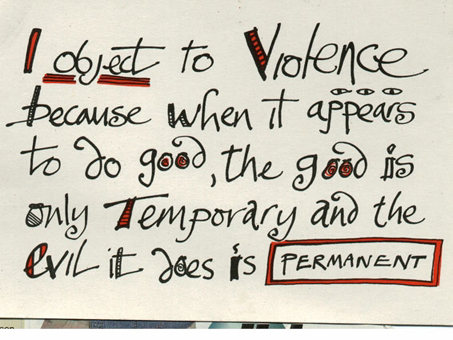 I object to Violence
because when it appears
to do good, the good is
only Temporary and the
Evil it does is PERMANENT